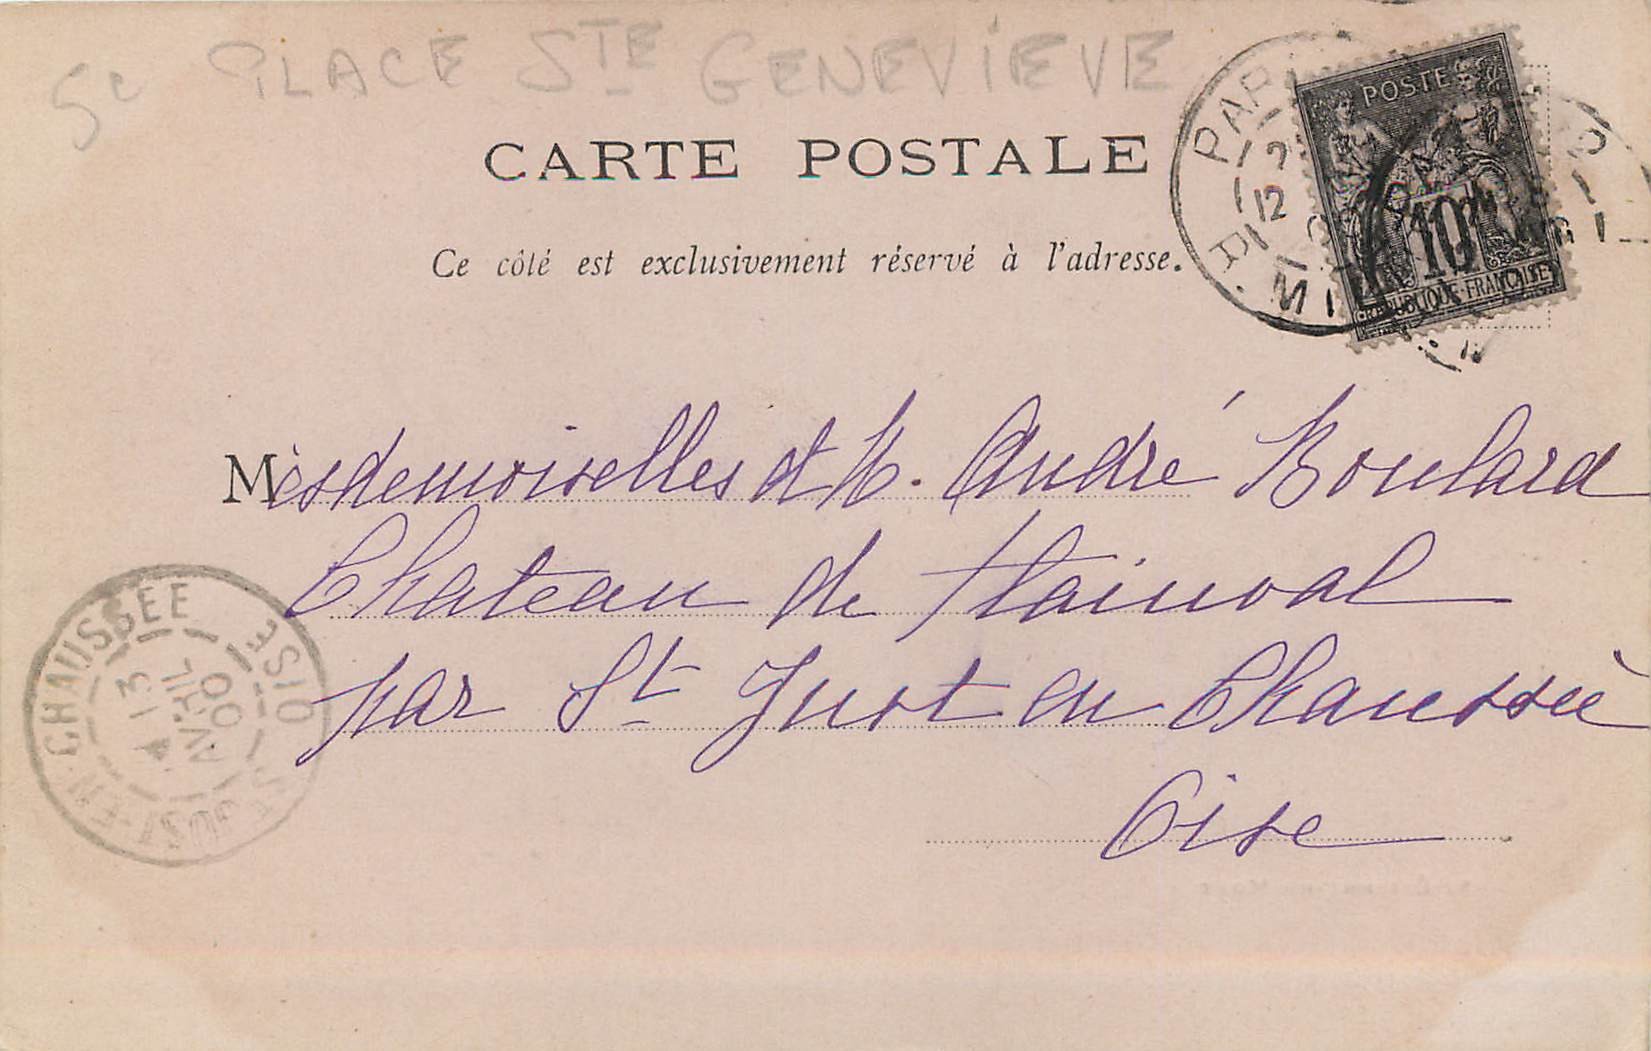 5c PLACE STE GENEVIEVE
CARTE POSTALE
Ce côté est exclusivement réservé à l'adresse.
POSTES
10
REPUBLIQUE FRANÇAISE
PARIS
12
Mesdemoiselles et M. André Boulard
Chateau de Plainval
par St Just en Chaussée
Oise
ST JUST-EN-CHAUSSEE
OISE
4
13
AVRIL
00